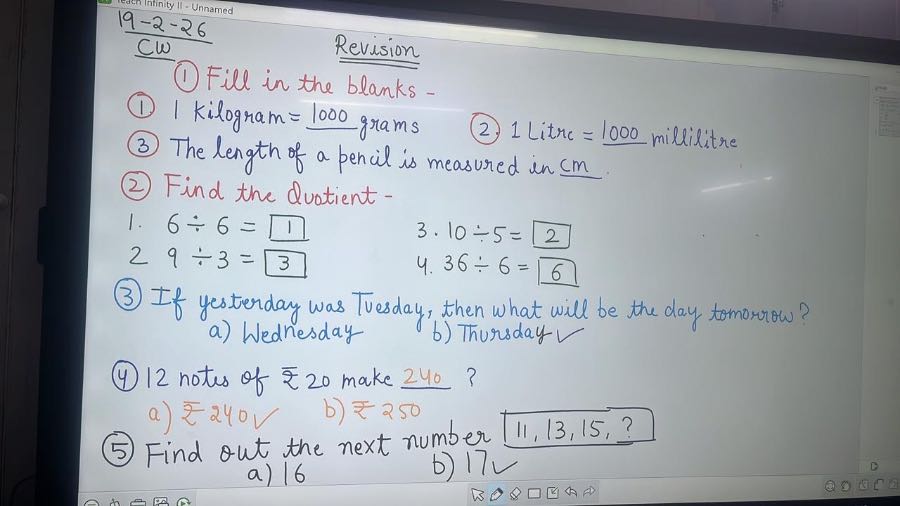 Teach Infinity II - Unnamed
19-2-26
CW
Revision
① Fill in the blanks -
①. 1 Kilogram = 1000 grams ②. 1 Litre = 1000 millilitre
③ The length of a pencil is measured in cm.
② Find the Quotient -
1. 6 ÷ 6 = 1 3. 10 ÷ 5 = 2
2 9 ÷ 3 = 3 4. 36 ÷ 6 = 6
③ If yesterday was Tuesday, then what will be the day tomorrow?
a) Wednesday b) Thursday ✓
④ 12 notes of ₹ 20 make 240 ?
a) ₹ 240 ✓ b) ₹ 250
⑤ Find out the next number 11, 13, 15, ?
a) 16 b) 17 ✓